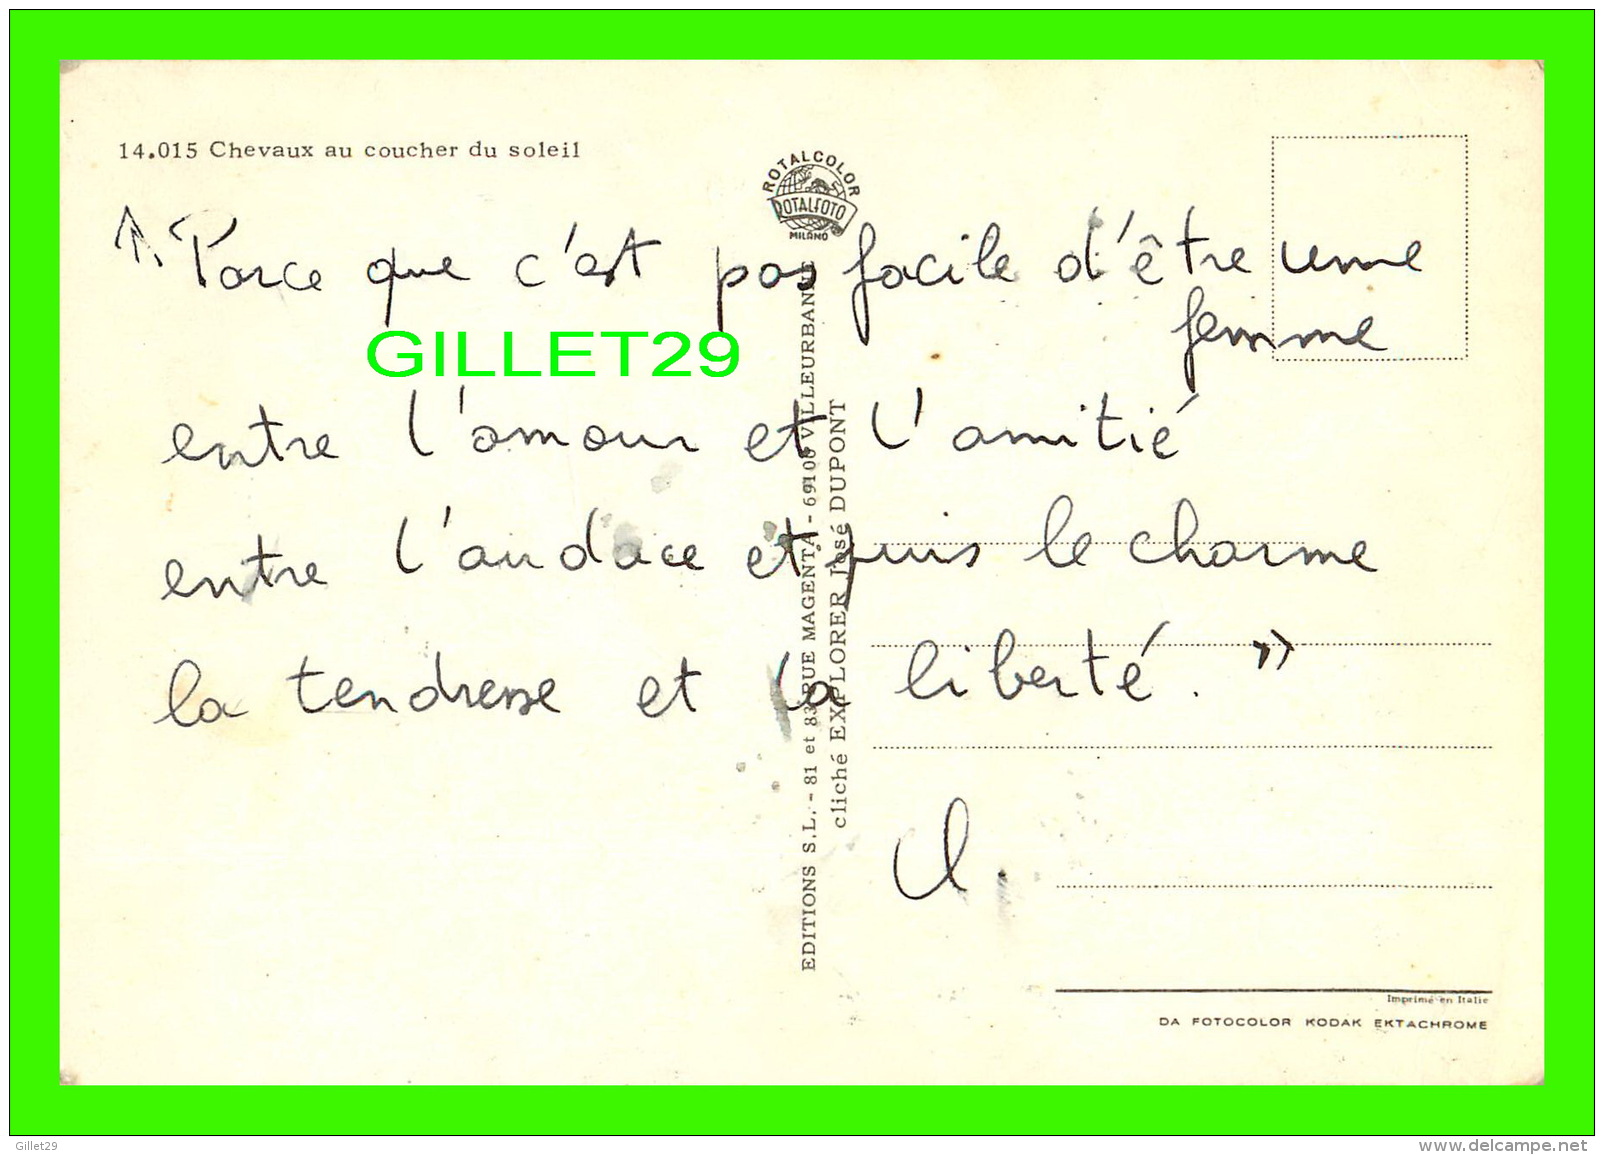 14.015 Chevaux au coucher du soleil
ROTALCOLOR
ROTALFOTO
MILANO
Parce que c'est pas facile d'être une
femme
GILLET29
entre l'amour et l'amitié
entre l'audace et puis le charme
la tendresse et la liberté. »
EDITIONS S.L. - 81 et 83 RUE MAGENTA - 69100 VILLEURBANNE
cliché EXPLORER José DUPONT
Imprimé en Italie
DA FOTOCOLOR KODAK EKTACHROME
Gillet29
www.delcampe.net